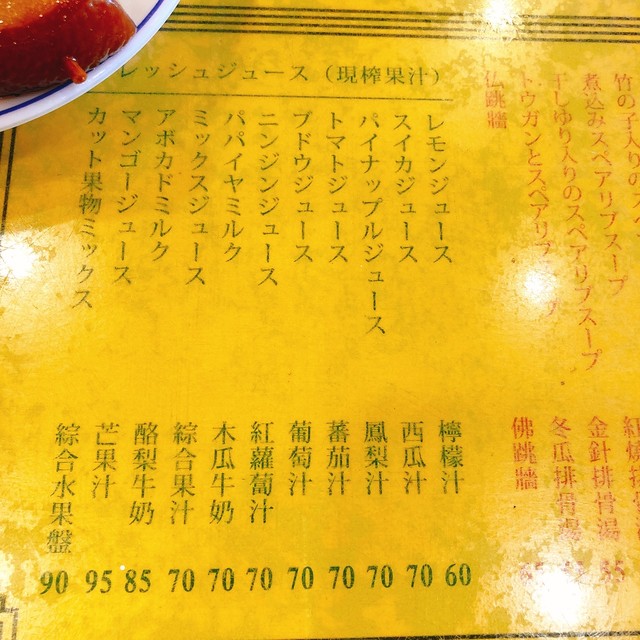 レッシュジュース（現榨果汁）
レモンジュース 檸檬汁 60
スイカジュース 西瓜汁 70
パイナップルジュース 鳳梨汁 70
トマトジュース 蕃茄汁 70
ブドウジュース 葡萄汁 70
ニンジンジュース 紅蘿蔔汁 70
パパイヤミルク 木瓜牛奶 70
ミックスジュース 綜合果汁 70
アボカドミルク 酪梨牛奶 85
マンゴージュース 芒果汁 95
カット果物ミックス 綜合水果盤 90
竹の子入りの
煮込みスペアリブスープ 紅燒
干しゆり入りのスペアリブスープ 金針排骨湯
トウガンとスペアリブ 冬瓜排骨湯
仏跳牆 佛跳牆